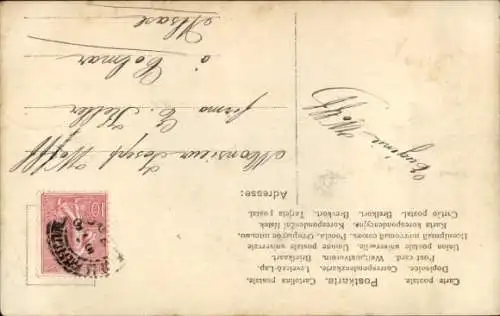 Carte postale.
Postkarte.
Cartolina postale.
Dopisnice. Correspondenzkarte. Levelező-Lap.
Post card. Weltpostverein. Briefkaart.
Union postale universelle. Unione postale universale
Karta korespondencyjna. Korespondenční lístek.
Cartão postal. Brefkort. Brevkort. Tarjeta postal.
Adresse:
Monsieur Joseph Wolff
firma C. Keller
à Colmar
Alsace
Eugénie Wolff
10